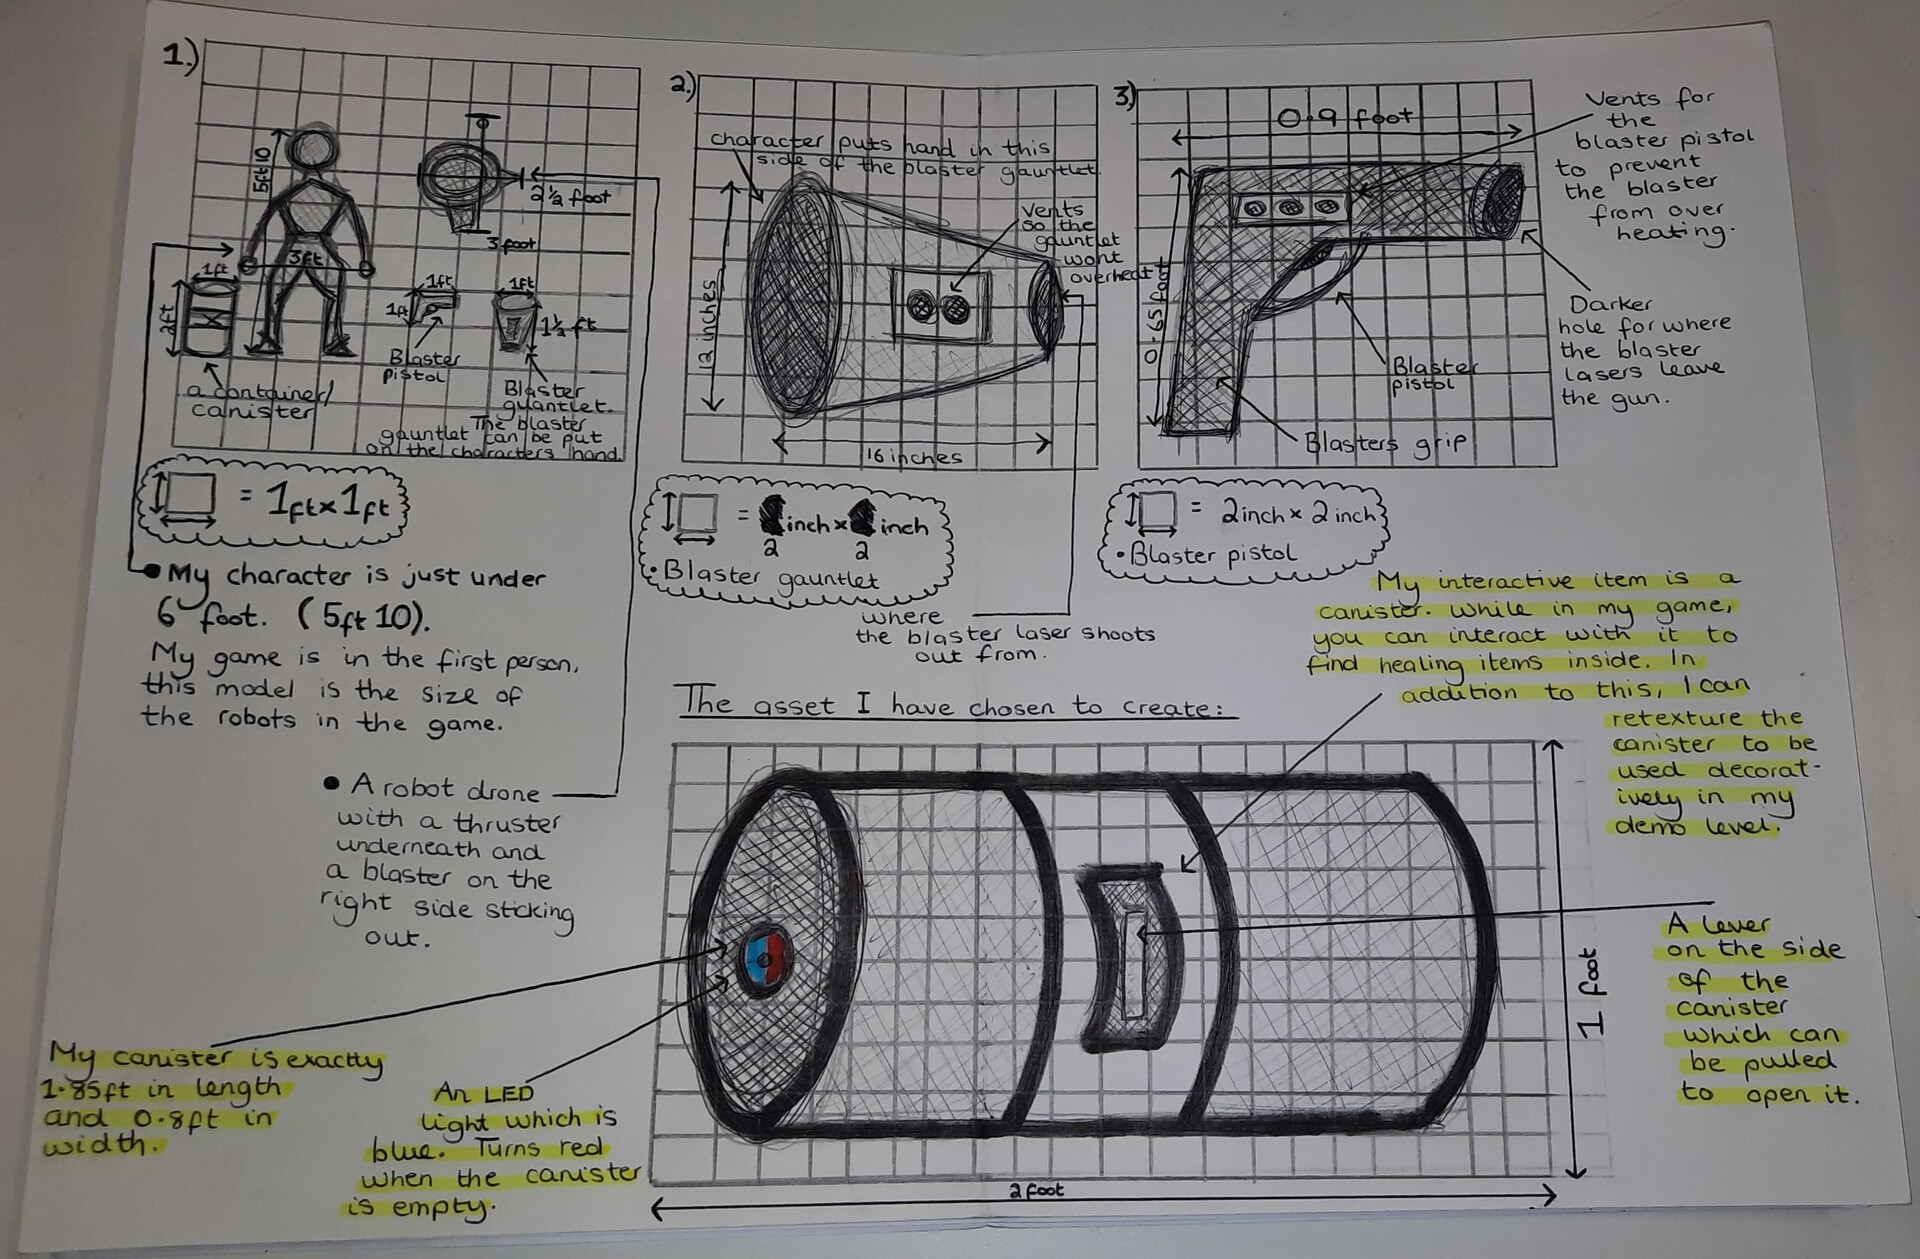 1.)
5ft 10
3ft
2 1/2 foot
3 foot
1ft
2ft
1ft
1ft
1ft
1 1/2 ft
a container/
canister
Blaster
pistol
Blaster
guantlet.
The blaster
gauntlet can be put
on the characters hand
= 1ft x 1ft
• My character is just under
6 foot. (5ft 10).
My game is in the first person,
this model is the size of
the robots in the game.
• A robot drone
with a thruster
underneath and
a blaster on the
right side sticking
out.
2.)
character puts hand in this
side of the blaster gauntlet.
Vents
so the
gauntlet
wont
overheat
12 inches
16 inches
= inch x inch
2 2
• Blaster gauntlet
where
the blaster laser shoots
out from.
3)
0.9 foot
0.65 foot
Vents for
the
blaster pistol
to prevent
the blaster
from over
heating.
Darker
hole for where
the blaster
lasers leave
the gun.
Blaster
pistol
Blasters grip
= 2 inch x 2 inch
• Blaster pistol
The asset I have chosen to create:
My interactive item is a
canister. While in my game,
you can interact with it to
find healing items inside. In
addition to this, I can
retexture the
canister to be
used decorat-
ively in my
demo level.
A lever
on the side
of the
canister
which can
be pulled
to open it.
1 foot
2 foot
My canister is exactly
1.85ft in length
and 0.8ft in
width.
An LED
light which is
blue. Turns red
when the canister
is empty.